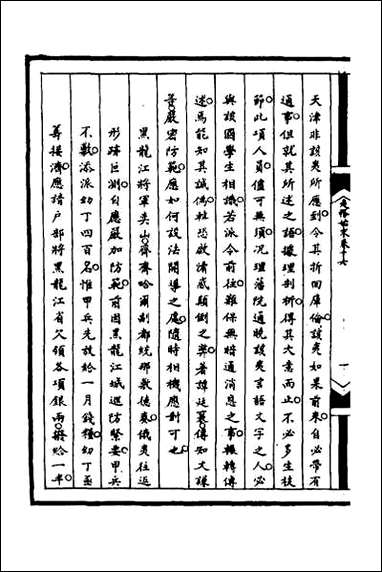 天津非該夷所應到今其折回庫倫該夷如果前來自必帶有
通事但就其所述之語據理剖析得其大意而止不必多生枝
節此項人員儘可無須況理藩院通曉該夷言語文字之人必
與該國學生相識若派令前往難保無暗通消息之事輾轉傳
述焉能知其誠偽杜恐啟情感顛倒之弊著諱廷襄傳知文謙
等嚴密防範應如何設法開導之處隨時相機應對可也
黑龍江將軍奕山齊齊哈爾副都統那敷德奏俄夷往返
形蹟叵測自應嚴加防範前因黑龍江城巡防緊要甲兵
不敷添派幼丁四百名惟甲兵先放給一月錢糧幼丁亟
籌接濟應請户部將黑龍江省欠領各項銀兩撥給一半